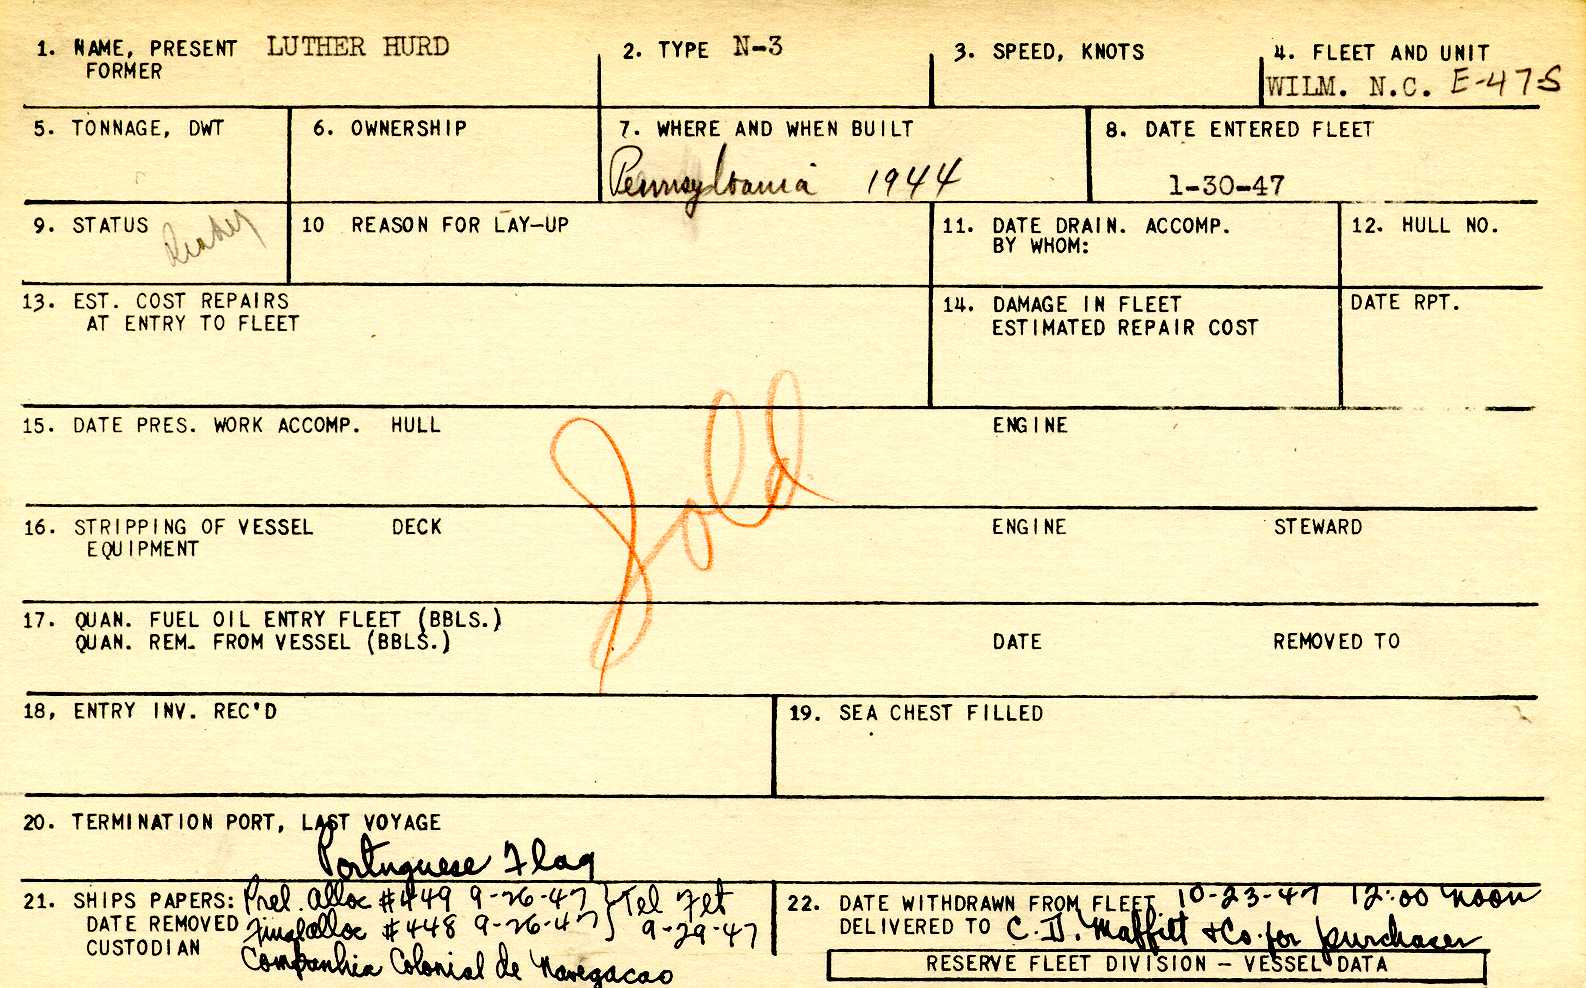 1. NAME, PRESENT LUTHER HURD 2. TYPE N-3 3. SPEED, KNOTS 4. FLEET AND UNIT
FORMER WILM. N.C. E-47-S
5. TONNAGE, DWT 6. OWNERSHIP 7. WHERE AND WHEN BUILT 8. DATE ENTERED FLEET
Pennsylvania 1944 1-30-47
9. STATUS 10 REASON FOR LAY-UP 11. DATE DRAIN. ACCOMP. 12. HULL NO.
BY WHOM:
13. EST. COST REPAIRS 14. DAMAGE IN FLEET DATE RPT.
AT ENTRY TO FLEET ESTIMATED REPAIR COST
Sold
15. DATE PRES. WORK ACCOMP. HULL ENGINE
16. STRIPPING OF VESSEL DECK ENGINE STEWARD
EQUIPMENT
17. QUAN. FUEL OIL ENTRY FLEET (BBLS.)
QUAN. REM. FROM VESSEL (BBLS.) DATE REMOVED TO
18, ENTRY INV. REC'D 19. SEA CHEST FILLED
20. TERMINATION PORT, LAST VOYAGE
Portuguese Flag
21. SHIPS PAPERS: Prel. Alloc #449 9-26-47 } Tel Flt 22. DATE WITHDRAWN FROM FLEET 10-23-47 12:00 noon
DATE REMOVED Final alloc #448 9-26-47 9-29-47 DELIVERED TO C. D. Maffitt & Co. for purchaser
CUSTODIAN Companhia Colonial de Navegacao
RESERVE FLEET DIVISION - VESSEL DATA